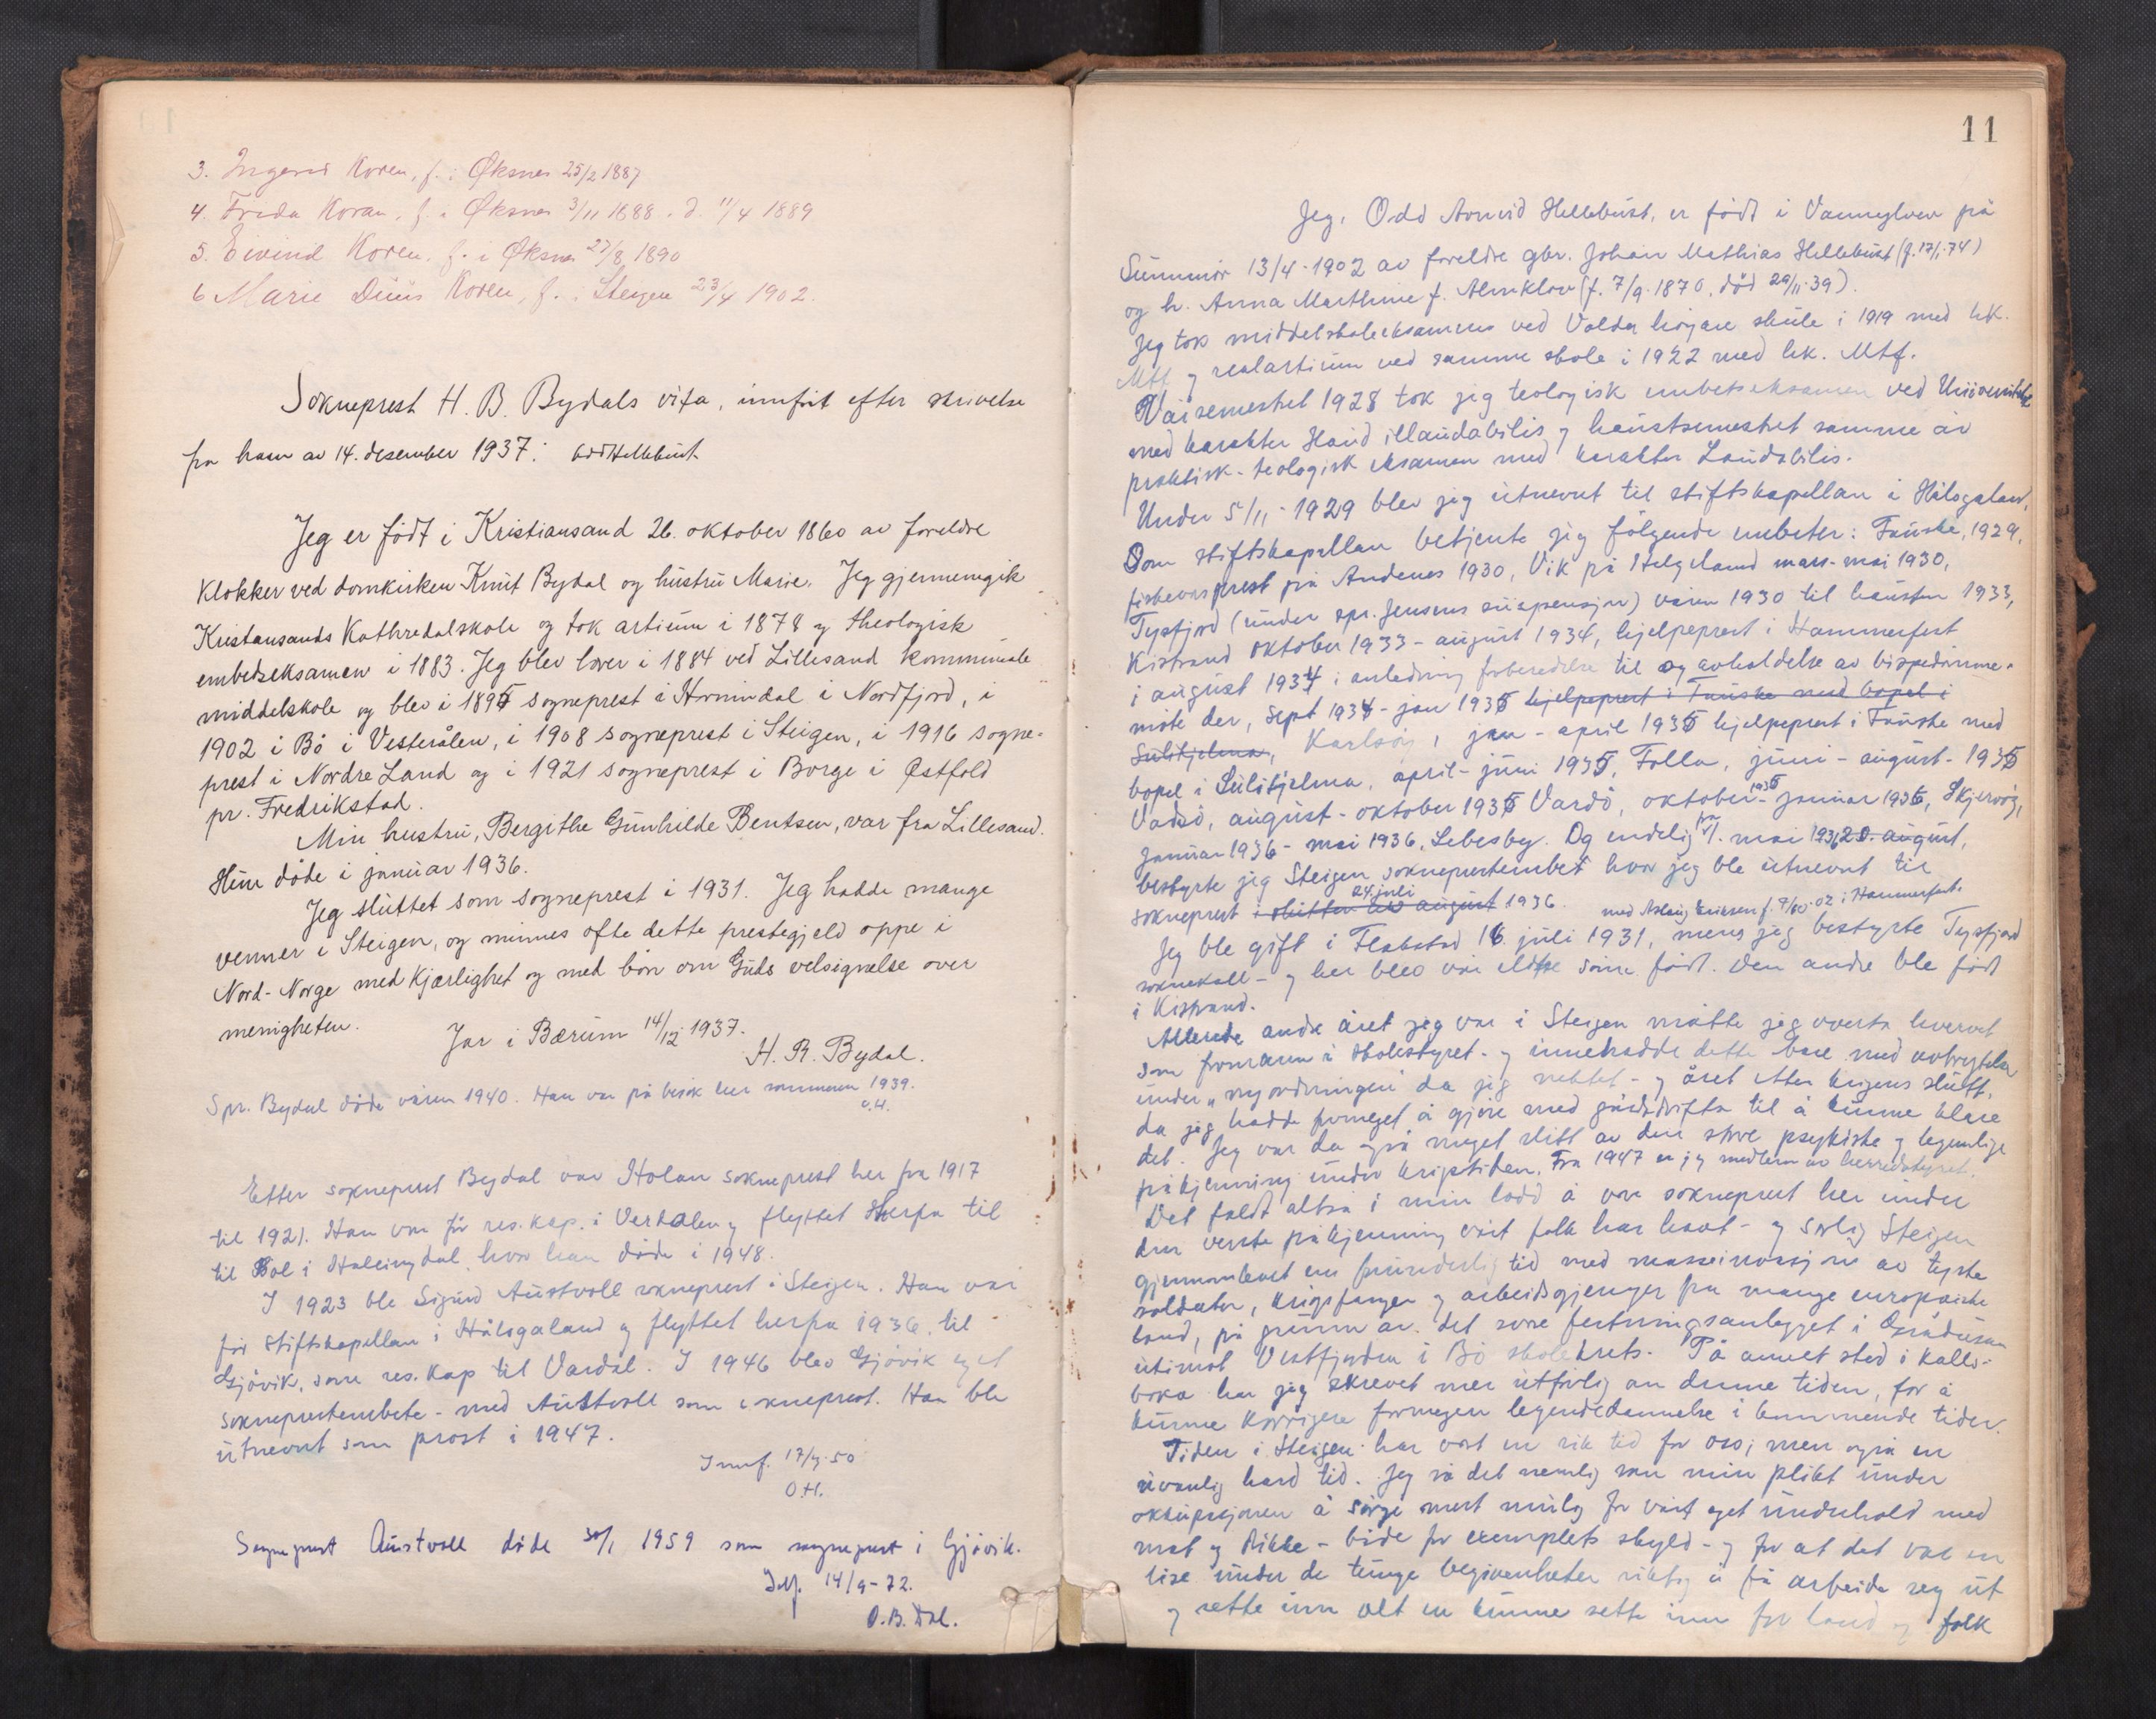 3. Ingerid Koren, f. i Øksnes 25/2 1887
4. Frida Koren, f. i Øksnes 3/11 1888. d. 11/4 1889
5. Eivind Koren. f. i Øksnes 27/8 1890
6 Marie Düüs Koren, f. i Steigen 23/4 1902.
Sokneprest H. B. Bydals vita, innført efter skrivelse
fra ham av 14. desember 1937: Odd Hellebust
Jeg er født i Kristiansand 26. oktober 1860 av foreldre
Klokker ved domkirken Knut Bydal og hustru Marie. Jeg gjennemgik
Kristansands Kathredalskole og tok artium i 1878 og theologisk
embedseksamen i 1883. Jeg blev lærer i 1884 ved Lillesand kommunale
middelskole og blev i 1895 sogneprest i Hornindal i Nordfjord, i
1902 i Bö i Vesterålen, i 1908 sogneprest i Steigen, i 1916 sogne-
prest i Nordre Land og i 1921 sogneprest i Borge i Østfold
pr. Fredrikstad.
Min hustru, Bergithe Gunhilde Bentsen, var fra Lillesand.
Hun döde i januar 1936.
Jeg sluttet som sogneprest i 1931. Jeg hadde mange
venner i Steigen, og minnes ofte dette prestegjeld oppe i
Nord-Norge med kjærlighet og med bön om Guds velsignelse over
menigheten.
Jar i Bærum 14/12 1937.
H. R. Bydal.
Spr. Bydal döde våren 1940. Han var på besök her sommeren 1939.
O.H.
Etter sokneprest Bydal var Holan sokneprest her fra 1917
til 1921. Han var för res. kap. i Verdalen og flyttet herfra til
til Ål i Hallingdal, hvor han döde i 1948.
I 1923 ble Sigurd Austvoll sokneprest i Steigen. Han var
för stiftskapellan i Hålogaland og flyttet herfra 1936. til
Gjövik, som res. kap til Vardal. I 1946 blev Gjövik eget
sokneprestembete - med Austvoll som sokneprest. Han ble
utnevnt som prost i 1947.
Innf. 17/4-50
O.H.
Sogneprest Austvoll döde 30/1 1959 som sogneprest i Gjövik.
Inf. 14/9-72.
O.B. Dal.
11
Jeg, Odd Arnvid Hellebust, er född i Vannylven på
Sunnmör 13/4-1902 av foreldre gbr. Johan Mathias Hellebust (f. 17/1-74)
og h. Anna Marthine f. Almklov (f. 7/9-1870, död 29/11-39).
Jeg tok middelskoleeksamen ved Volda högare skule i 1919 med hk.
Mtf og realartium ved samme skole i 1922 med hk. Mtf.
Vårsemestret 1928 tok jeg teologisk embetseksamen ved Universitetet
med karakter Haud illaudabilis og höstsemestret samme år
praktisk-teologisk eksamen med karakter Laudabilis.
Under 5/11-1929 blev jeg utnevnt til stiftskapellan i Hålogaland,
Som stiftskapellan betjente jeg fölgende embeter: Fauske, 1929,
fiskeværsprest på Andenes 1930, Vik på Helgeland mars-mai 1930,
Tysfjord (under spr. Jensens suspensjon) våren 1930 til hösten 1933,
Kistrand oktober 1933 - august 1934, hjelpeprest i Hammerfest
i august 1934 i anledning forberedelse til og avholdelse av bispedömme-
möte der, sept 1934 - jan 1935 hjelpeprest i Fauske med bopel i
Sulitjelma, Karlsöy, jan - april 1935 hjelpeprest i Fauske med
bopel i Sulitjelma, april - juni 1935, Folla, juni - august - 1935
Vadsö, august - oktober 1935 Vardö, oktober 1935 - januar 1936, Skjervöy,
januar 1936 - mai 1936, Lebesby. Og endelig fra 1. mai 1936 20. august,
bestyrte jeg Steigen sokneprestembet hvor jeg ble utnevnt til
sokneprest i slutten av august 24. juli 1936. med Aslaug Eriksen f. 9/10-02 i Hammerfest.
Jeg ble gift i Flakstad 16. juli 1931, mens jeg bestyrte Tysfjord
soknekall - og her blev vår eldste sönn född. Den andre ble född
i Kistrand.
Allerede andre året jeg var i Steigen måtte jeg overta hvervet
som formann i skolestyret - og innehadde dette bare med avbrytelse
under "nyordningen" da jeg nektet - og året etter krigens slutt,
da jeg hadde formeget å gjöre med gårdsdrifta til å kunne klare
det. Jeg var da også meget slitt av den store psykiske og legemlige
påkjenning under krigstiden. Fra 1947 er jeg medlem av herredstyret.
Det faldt altså i min lodd å være sokneprest her under
den verste påkjenning vårt folk har havt - og særlig Steigen
gjennomlevet en forunderlig tid med masseinvasjon av tyske
soldater, krigsfanger og arbeidsgjenger fra mange europæiske
land, på grunn av det svære festningsanlegget i
utimot Vestfjorden i Bö skolekrets. På annet sted i kalls-
boka har jeg skrevet mer utförlig om denne tiden, for å
kunne korrigere formegen legendedannelse i kommende tider.
Tiden i Steigen har vært en rik tid for oss; men også en
uvanlig hard tid. Jeg så det nemlig som min plikt under
okkupasjonen å sörge mest mulig for vårt eget underhold med
mat og - både for exemplets skyld - og for at det var en
lise under de tunge begivenheter riktig å få arbeide seg ut
og sette inn alt en kunne sette inn for land og folk